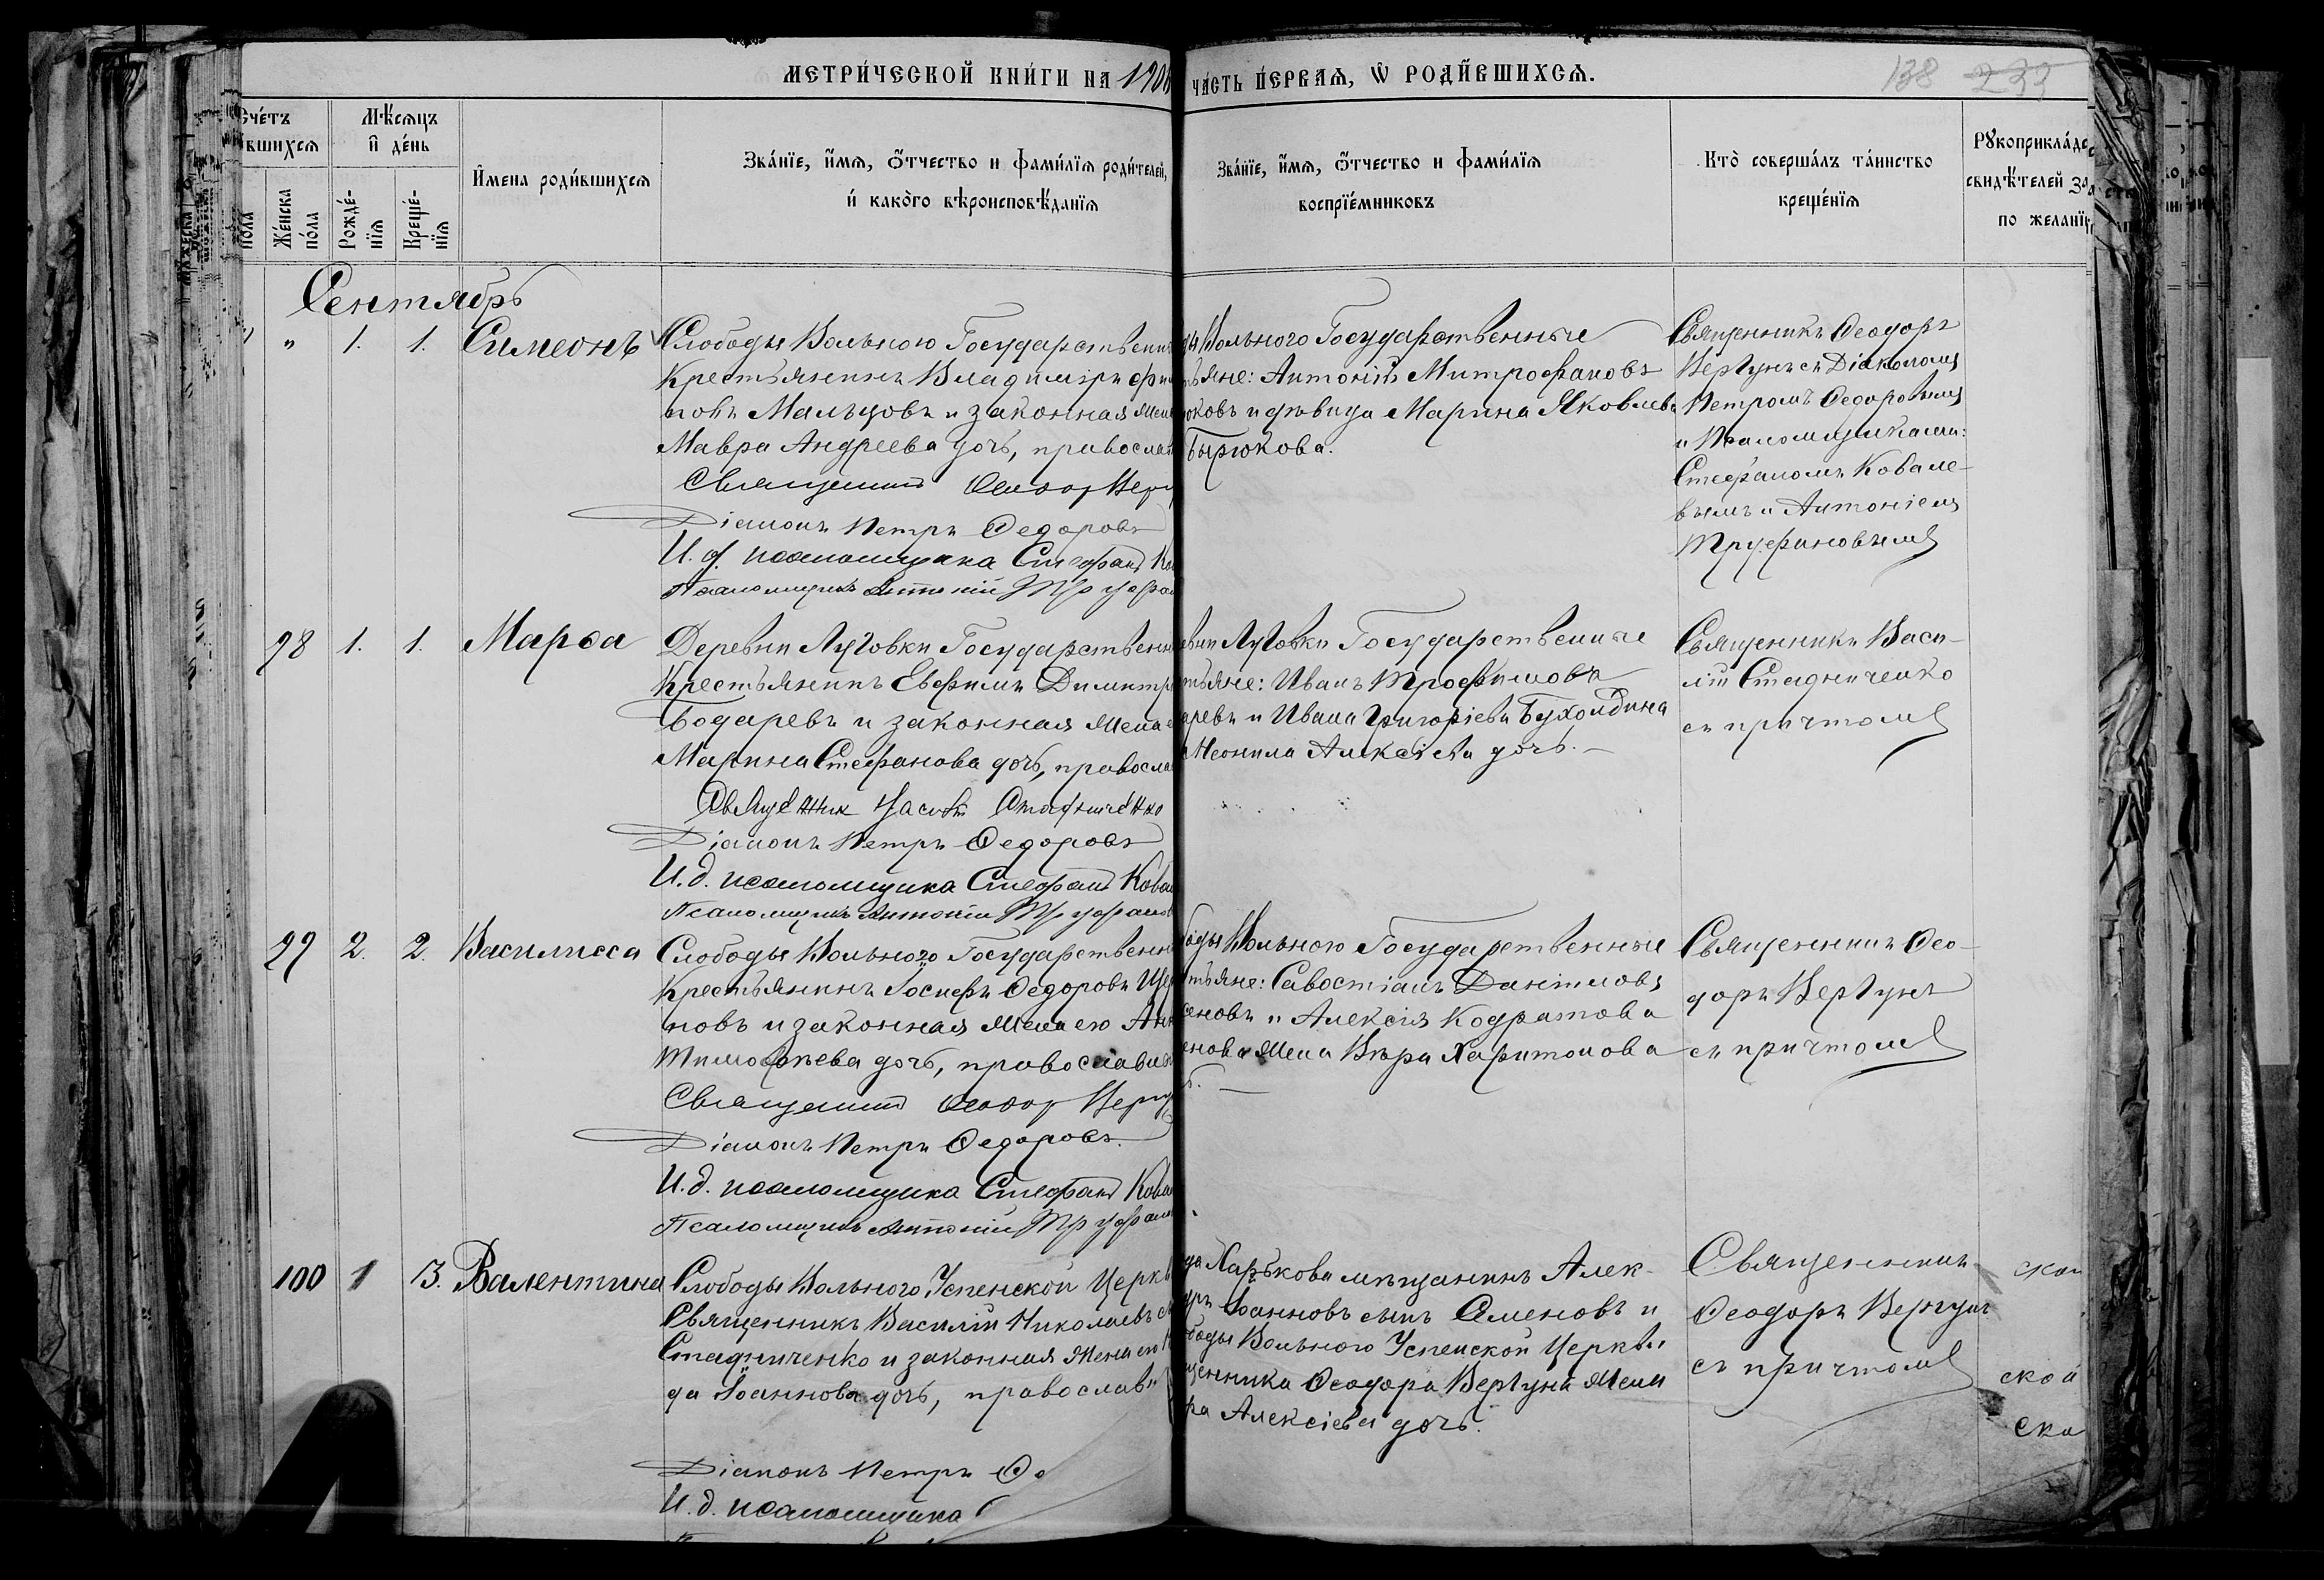 МЕТРИ́ЧЕСКОЙ КНИ́ГИ НА 190
ЧА́СТЬ ПЕ́РВАѦ, Ѡ РОДИ́ВШИХСѦ.
138 233
Счéтъ
вшихсѧ
Мѣ́сѧцъ
и де́нь
по́ла
Же́нска
по́ла
Рожде́-
нїѧ
Креще́-
нїѧ
И҆мена роди́вшихсѧ
Зва́нїе, и҆́мѧ, ѻ҆́тчество и фами́лїѧ роди́телей,
и҆ како́гѡ вѣроисповѣ́данїѧ
Зва́нїе, и҆́мѧ, ѻ҆́тчество и фами́лїѧ
воспрїе́мниковъ
Кто̀ соверша́лъ та́инство
креще́нїѧ
Рꙋкоприкла́дс
свидѣ́телей за
по желанїю
Сентябрь
" 1. 1. Симеонъ
Слободы Вольного Государственн
Крестьянинъ Владиміръ Фи
повъ Мальцовъ и законная жен
Мавра Андреева дочь, правосла
Священникъ Ѳеодоръ Вергу
Діаконъ Петръ Ѳедоровъ
И. д. псаломщика Стефанъ Ко
Псаломщикъ Антоній Труфан
ды Вольного Государственные
тьяне: Антоній Митрофановъ
юковъ и дѣвица Марина Яковлева
Бырюкова.
Священникъ Ѳеодоръ
Вергунъ съ Діакономъ
Петромъ Ѳедоровымъ
и Псаломщиками:
Стефаномъ Ковале-
вымъ и Антоніемъ
Труфановымъ
98 1. 1. Марѳа
Деревни Луговки Государственн
Крестьянинъ Евфимъ Димитр
Бодаревъ и законная жена е
Марина Стефанова дочь, правосла
Священник Василій Стадниченко
Діаконъ Петръ Ѳедоровъ
И. д. псаломщика Стефанъ Кова
Псаломщикъ Антоній Труфанов
евни Луговки Государственные
тьяне: Иванъ Трофимовъ
аревъ и Ивана Григоріева Бухолдина
Неонила Алексіева дочь.
Священникъ Васи-
лій Стадниченко
съ причтомъ
99 2. 2. Василисса
Слободы Вольного Государственн
Крестьянинъ Іосифъ Ѳедоровъ Ще
новъ и законная жена его Анн
Тимоѳѣева дочь, православн
Священникъ Ѳеодоръ Вергу
Діаконъ Петръ Ѳедоровъ.
И. д. псаломщика Стефанъ Кова
Псаломщикъ Антоній Труфан
боды Вольного Государственные
тьяне: Савостіанъ Даніиловъ
еновъ и Алексія Кодратова
енова жена Вѣра Харитонова
ь.
Священникъ Ѳео-
доръ Вергунъ
съ причтомъ
100 1 3. Валентина
Слободы Вольного Успенской Церкв
Священникъ Василій Николаевъ с
Стадниченко и законная жена его
да Іоаннова дочь, православ
Діаконъ Петръ Ѳе
И. д. псаломщика
да Харькова мѣщанинъ Алек-
дръ Іоанновъ сынъ Семеновъ и
боды Вольного Успенской Церкви
щенника Ѳеодора Вергуна жена
ра Алексіева дочь.
Священникъ
Ѳеодоръ Вергунъ
съ причтомъ
ской
ской
ско